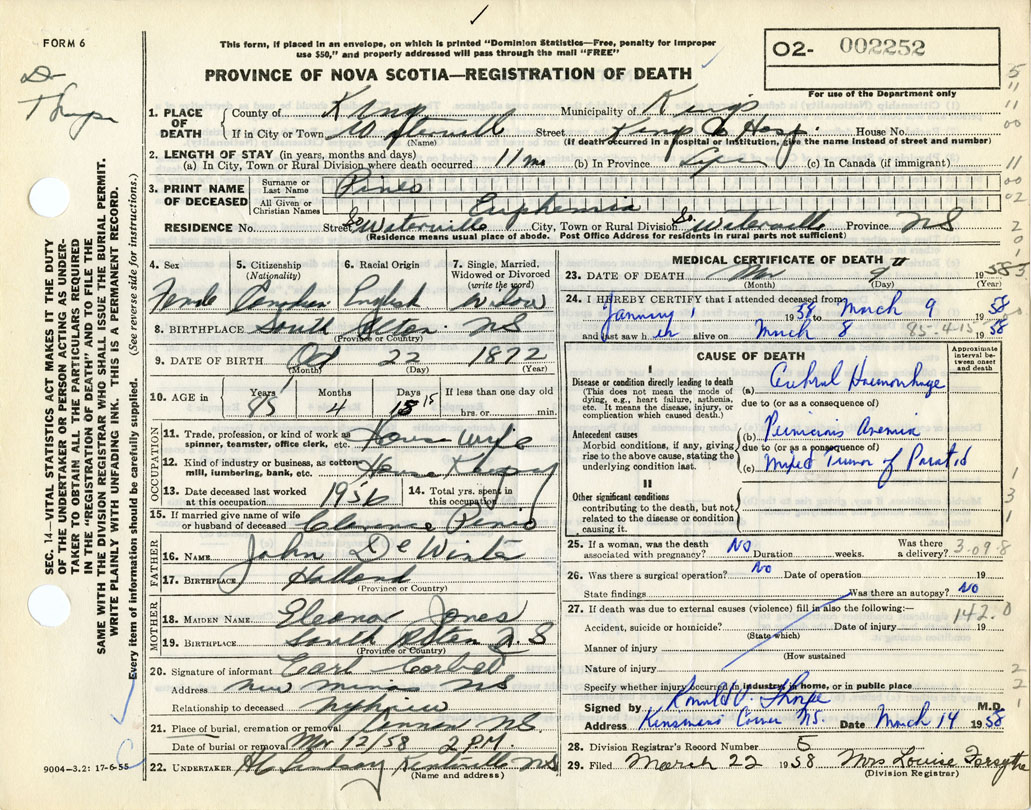 FORM 6
Dr
This form, if placed in an envelope, on which is printed "Dominion Statistics—Free, penalty for improper
use $50," and properly addressed will pass through the mail "FREE"
O2- 002252
For use of the Department only
PROVINCE OF NOVA SCOTIA—REGISTRATION OF DEATH
1. PLACE OF DEATH
County of Kings Municipality of Kings
If in City or Town Waterville Street Kings Co Hosp. House No.
(Name) (If death occurred in a hospital or institution, give the name instead of street and number)
2. LENGTH OF STAY (in years, months and days)
(a) In City, Town or Rural Division where death occurred 11 mo (b) In Province (c) In Canada (if immigrant)
3. PRINT NAME OF DECEASED
Surname or Last Name Pineo
All Given or Christian Names Euphemia
RESIDENCE No. Street So Waterville City, Town or Rural Division So. Waterville Province NS
(Residence means usual place of abode. Post Office Address for residents in rural parts not sufficient)
4. Sex Female
5. Citizenship (Nationality) Canadian
6. Racial Origin English
7. Single, Married, Widowed or Divorced (write the word) Widow
8. BIRTHPLACE South Alton NS
(Province or Country)
9. DATE OF BIRTH Oct 22 1872
(Month) (Day) (Year)
10. AGE in Years 85 Months 4 Days 15 15 If less than one day
hrs. or min.
OCCUPATION
11. Trade, profession, or kind of work as spinner, teamster, office clerk, etc. House Wife
12. Kind of industry or business, as cotton mill, lumbering, bank, etc. House Keeping
13. Date deceased last worked at this occupation 1956
14. Total yrs. spent in this occupation
15. If married give name of wife or husband of deceased Clarence Pineo
FATHER
16. NAME John De Winter
17. BIRTHPLACE Holland
(Province or Country)
MOTHER
18. MAIDEN NAME Eleanor Jones
19. BIRTHPLACE South Alton N.S
(Province or Country)
20. Signature of informant Earl Corbett
Address New Minas NS
Relationship to deceased Nephew
21. Place of burial, cremation or removal NS.
Date of burial or removal Mar 12/58 2 PM.
22. UNDERTAKER Lindsay Kentville NS
(Name and address)
MEDICAL CERTIFICATE OF DEATH
23. DATE OF DEATH Mar 9 1958
(Month) (Day) (Year)
24. I HEREBY CERTIFY that I attended deceased from
January 1 1958 to March 9 1958
and last saw h er alive on March 8 1958
85-4-15
CAUSE OF DEATH
Approximate interval between onset and death
I
Disease or condition directly leading to death
(This does not mean the mode of dying, e.g., heart failure, asthenia, etc. It means the disease, injury, or complication which caused death.)
(a) Cerebral Haemorrhage
due to (or as a consequence of)
Antecedent causes
Morbid conditions, if any, giving rise to the above cause, stating the underlying condition last.
(b) Pernicious Anemia
due to (or as a consequence of)
(c) Mixed Tumor of Parotid
II
Other significant conditions
contributing to the death, but not related to the disease or condition causing it.
25. If a woman, was the death associated with pregnancy? No Duration weeks. Was there a delivery? 3-09-8
26. Was there a surgical operation? No Date of operation 19
State findings Was there an autopsy? No
27. If death was due to external causes (violence) fill in also the following:— 142.0
Accident, suicide or homicide? Date of injury 19
(State which)
Manner of injury
(How sustained
Nature of injury
Specify whether injury occurred in industry, in home, or in public place
Signed by Ronald V. Thorpe M.D.
Address Kinsmans Corner NS. Date March 14 1958
28. Division Registrar's Record Number 5
29. Filed March 22 1958 Mrs Louise Forsythe
(Division Registrar)
SEC. 14—VITAL STATISTICS ACT MAKES IT THE DUTY
OF THE UNDERTAKER OR PERSON ACTING AS UNDER-
TAKER TO OBTAIN ALL THE PARTICULARS REQUIRED
IN THE "REGISTRATION OF DEATH" AND TO FILE THE
SAME WITH THE DIVISION REGISTRAR WHO SHALL ISSUE THE BURIAL PERMIT.
WRITE PLAINLY WITH UNFADING INK. THIS IS A PERMANENT RECORD.
Every item of information should be carefully supplied. (See reverse side for instructions.)
9004-3.2: 17-6-55